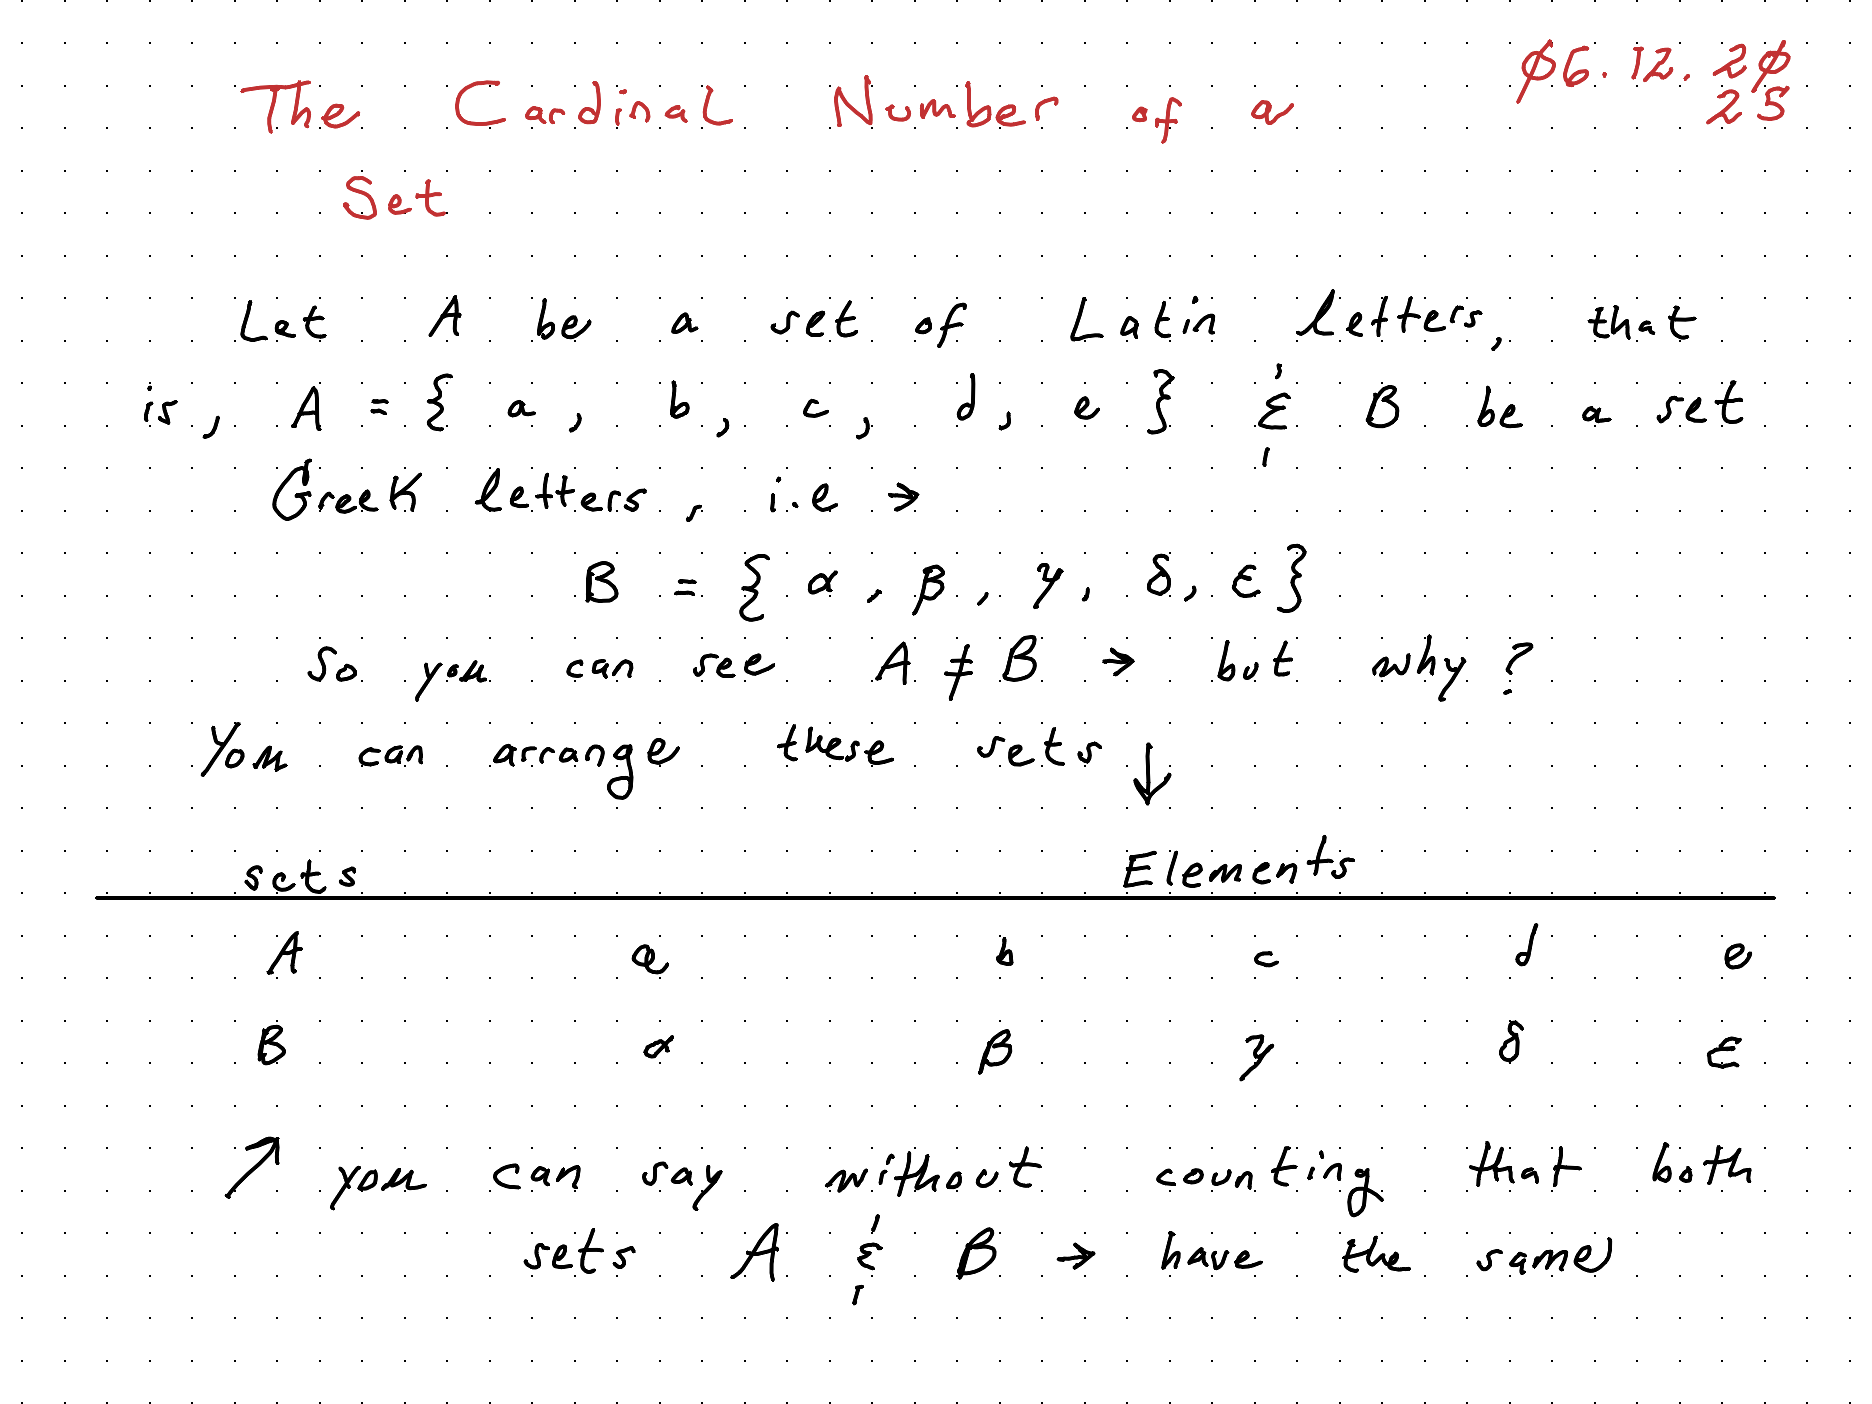 The Cardinal Number of a
Set
06.12.20
25
Let A be a set of Latin letters, that
is, A = { a, b, c, d, e } & B be a set
Greek letters, i.e →
B = { α, β, γ, δ, ε }
So you can see A ≠ B → but why?
You can arrange these sets ↓
sets Elements
A a b c d e
B α β γ δ ε
↗ you can say without counting that both
sets A & B → have the same